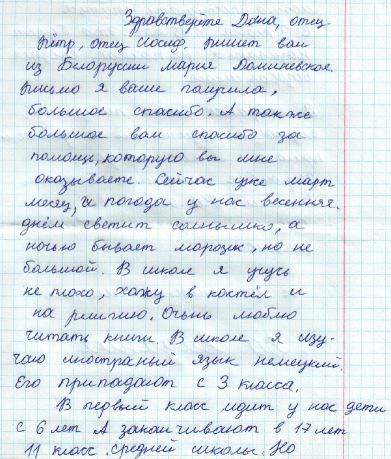 Здравствуйте Дана, отец
Пётр, отец Иосиф. Пишет вам
из Белоруссии Мария Доминевская.
Письмо я ваше получила,
большое спасибо. А также
большое вам спасибо за
помощь, которую вы мне
оказываете. Сейчас уже март
месяц, и погода у нас весенняя.
днём светит солнышко, а
ночью бывает морозик, но не
большой. В школе я учусь
не плохо, хожу в костёл и
на религию. Очень люблю
читать книги. В школе я изу-
чаю иностраный язык немецкий.
Его преподают с 3 класса.
В первый класс идут у нас дети
с 6 лет А заканчивают в 17 лет
11 класс. средней школы. Но